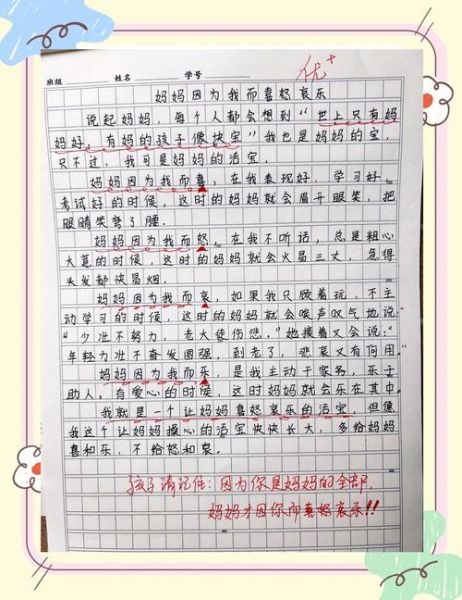 班级 姓名 学号
优+
妈妈因为我而喜怒哀乐
说起妈妈，每个人都会想到“世上只有妈
妈好，有妈的孩子像块宝”我也是妈妈的宝，
只不过，我可是妈妈的活宝。
妈妈因为我而喜，在我表现好，学习好，
考试好的时候，这时的妈妈就会眉开眼笑，把
眼睛笑弯了腰。
妈妈因为我而怒。在我不听话，总是粗心
大意的时候，这时的妈妈就会火冒三丈，急得
头发都快冒烟。
妈妈因为我而哀，如果我只顾着玩，不主
动学习的时候，这时的妈妈就会唉声叹气地说：
“少壮不努力，老大徒伤悲。”她接着又会说：“
年轻力壮不奋发图强，到老了，悲哀又有何用。”
妈妈因为我而乐，是我主动干家务，乐于
助人，有爱心的时候，这时妈妈就会乐在其中。
我就是一个让妈妈喜怒哀乐的活宝，但像
我这个让妈妈操心的活宝快快长大，多给妈妈
喜和乐，不给怒和哀。
孩子请记住：因为你是妈妈的全部，
妈妈才因你而喜怒哀乐！！